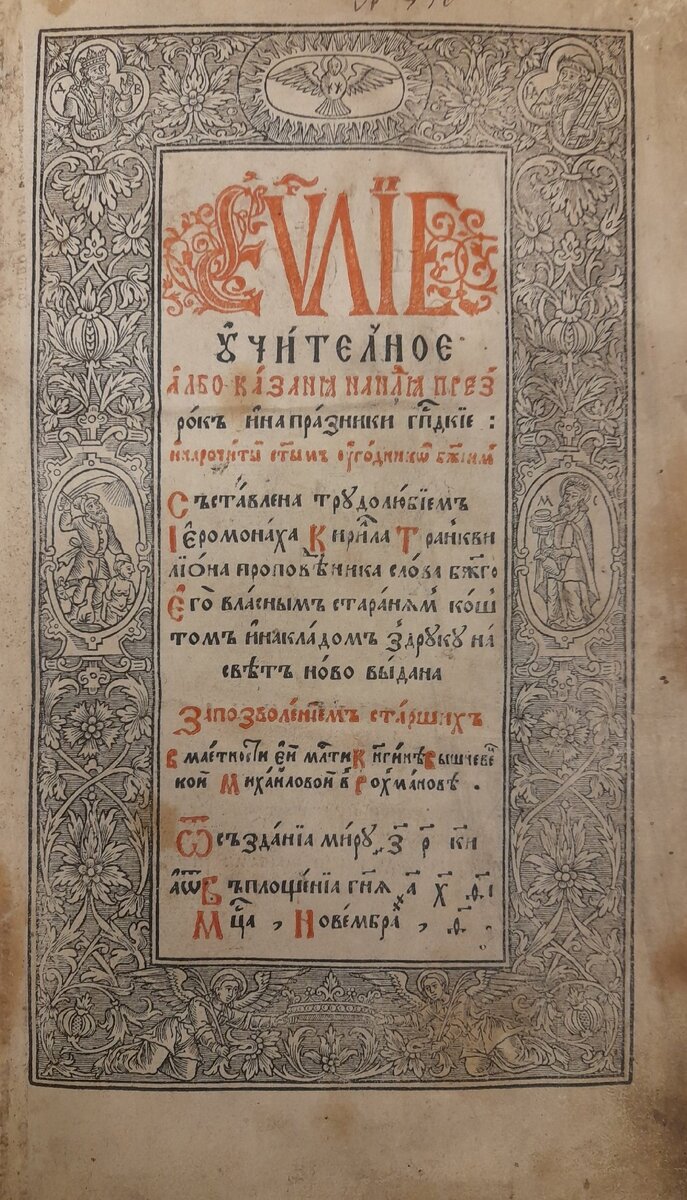 Єѵⷢ҇лїе
ᲂу҆чи́телⷩ҇ное
а҆лбо ка́заниѧ на нлⷣѧ презъ
ро́къ и҆ на пра́зники гпⷭ҇дкїе :
и нарочиты́ⷨ ст҃ымъ ᲂу҆го́дникѡⷨ бж҃иимⷨ
Съста́влена трудолю́бїемъ
І҆еромона́ха Кири́ла Транкви
лїо́на проповѣ́дника сло́ва бж҃го
Є҆го̀ вла́снымъ стара́нѧⷨ ко́ш
томъ и҆ накла́домъ з̾дру́ку на
свѣ́тъ но́во вы́дана
За позволе́нїемъ ста́ршихъ
в маетности є҆й млⷭ҇ти Кнгинѣ Вышневеⷰ҇
кой Миха́йловой в Рохма́новѣ .
Ѿ създа́нїа ми́ру ҂з҃ р҃ к҃и
а҆ ѿ Въплоще́нїа гнѧ ҂а҃ х҃ ѳ҃і
Мцⷭ҇а , Нове́мбра , ѳ҃